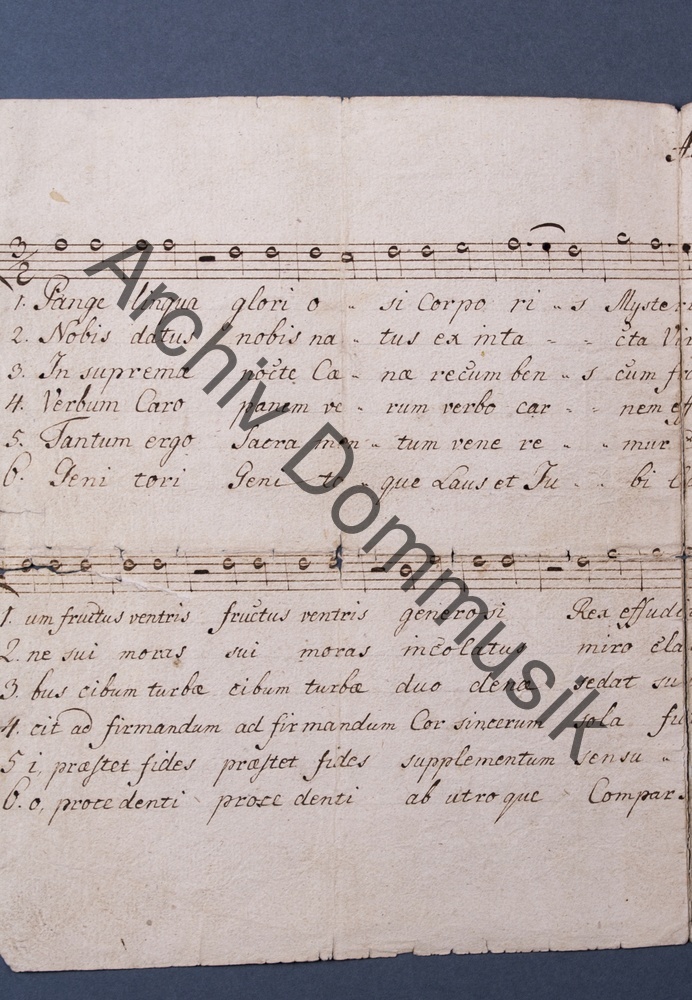 3/2
1. Pange lingua glori o - si Corpo ri - s Myster
2. Nobis datus nobis na - tus ex inta - - cta Vir
3. In suprema nocte Cœ - næ recum ben - s cum fra
4. Verbum Caro panem ve - rum verbo car - - nem eff
5. Tantum ergo Sacra men - tum vene re - - mur
6. Geni tori Geni to - que Laus et Ju - - bi
1. um fructus ventris fructus ventris generosi Rex effudi
2. ne sui moras sui moras incolatus miro cla
3. bus cibum turbæ cibum turbæ duo denæ sedat su
4. cit ad firmandum ad fir mandum Cor sincerum sola fi
5 i, præstet fides præstet fides supplementum sensu -
6. o, proce denti proce denti ab utro que Compar
Archiv Dommusik